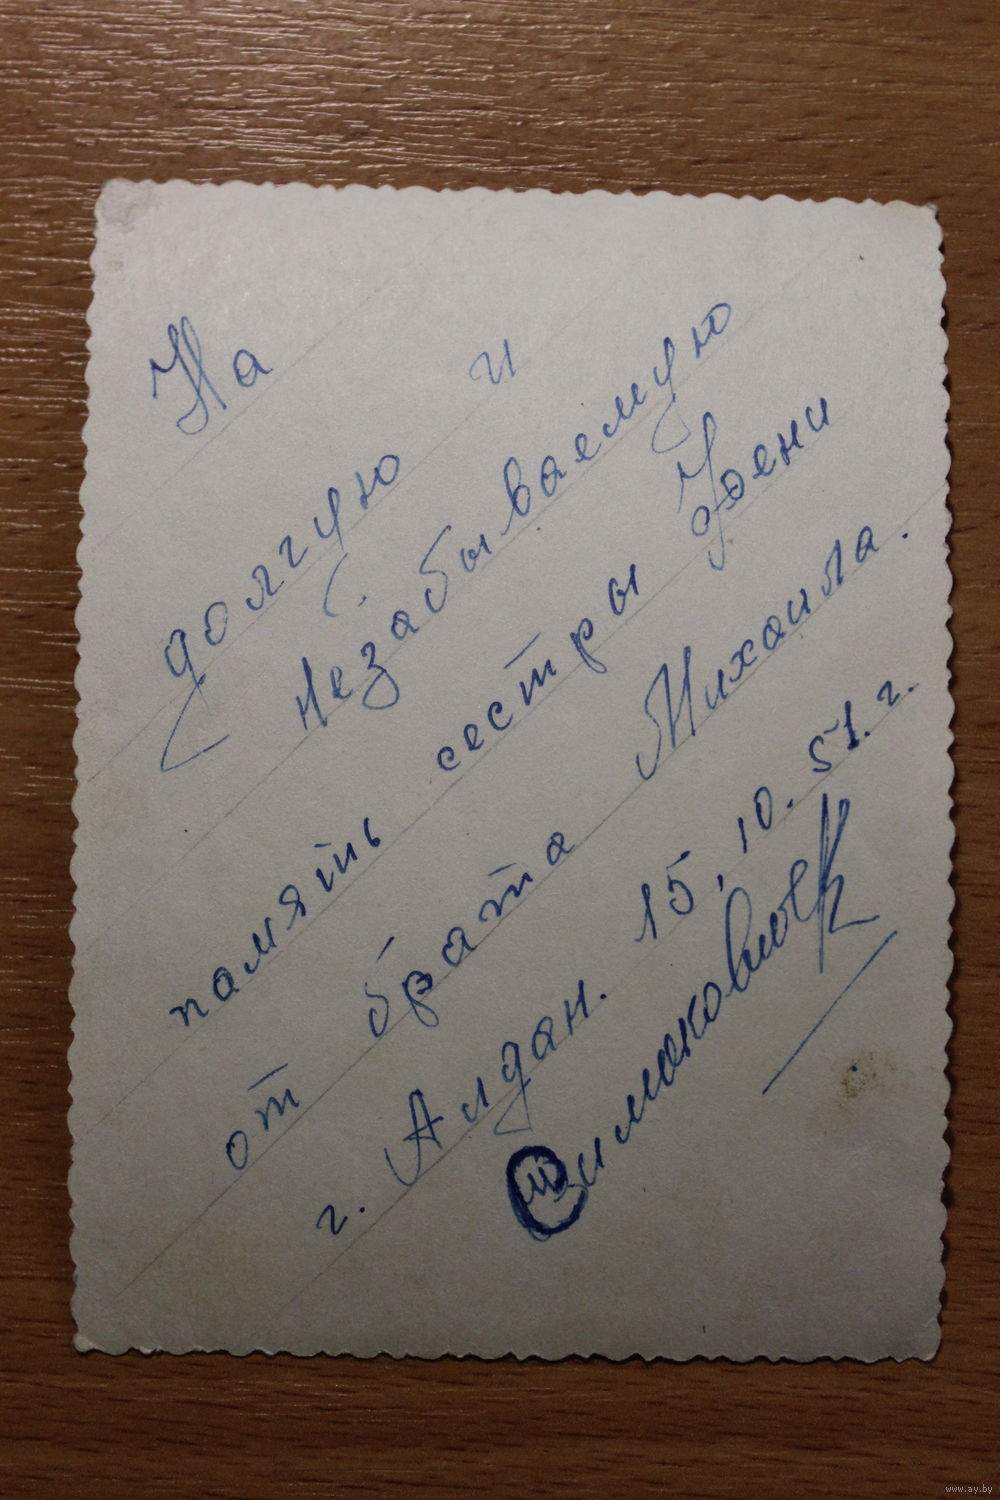 На
долгую и
незабываемую
память сестры Фени
от брата Михаила.
г. Алдан. 15.10.51.г.
www.ay.by